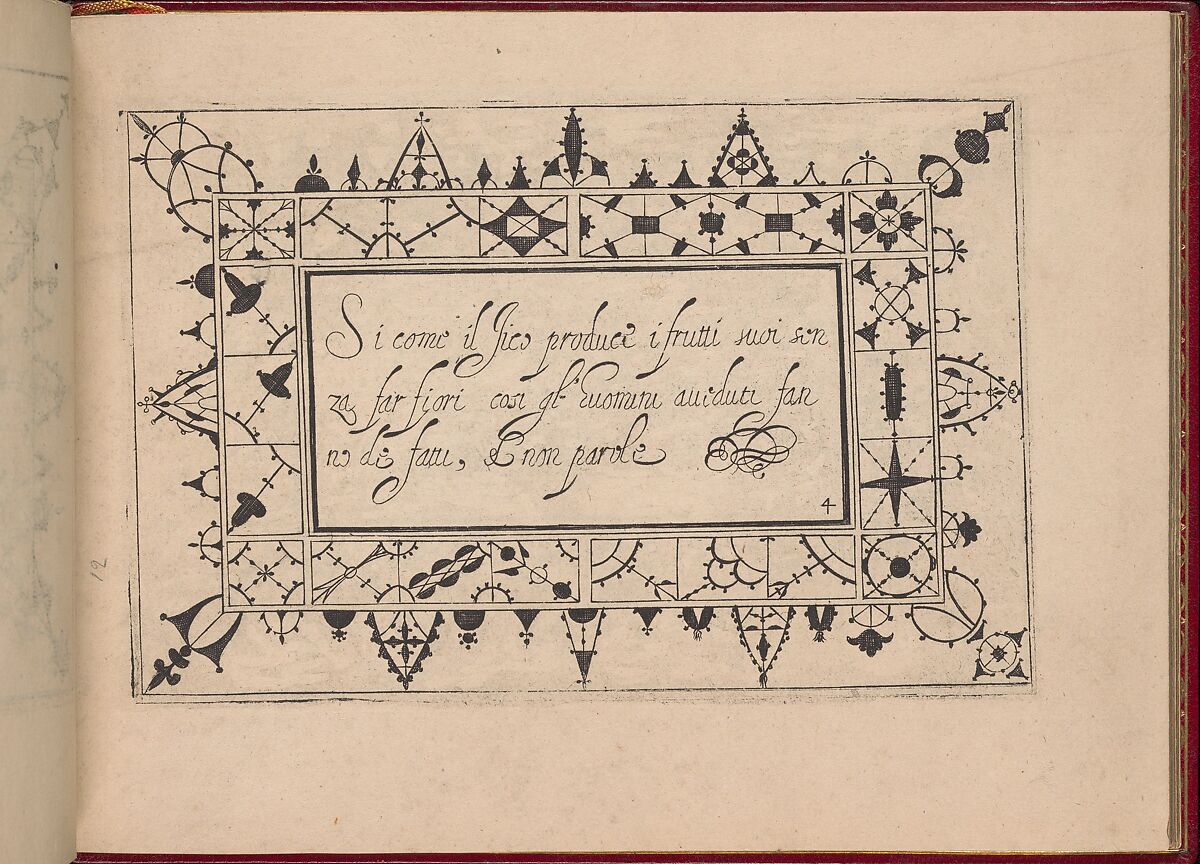 Si come il fico produce i frutti suoi sen
za far fiori cosi gl' huomini aueduti fan
no de fatti, & non parole
4
12